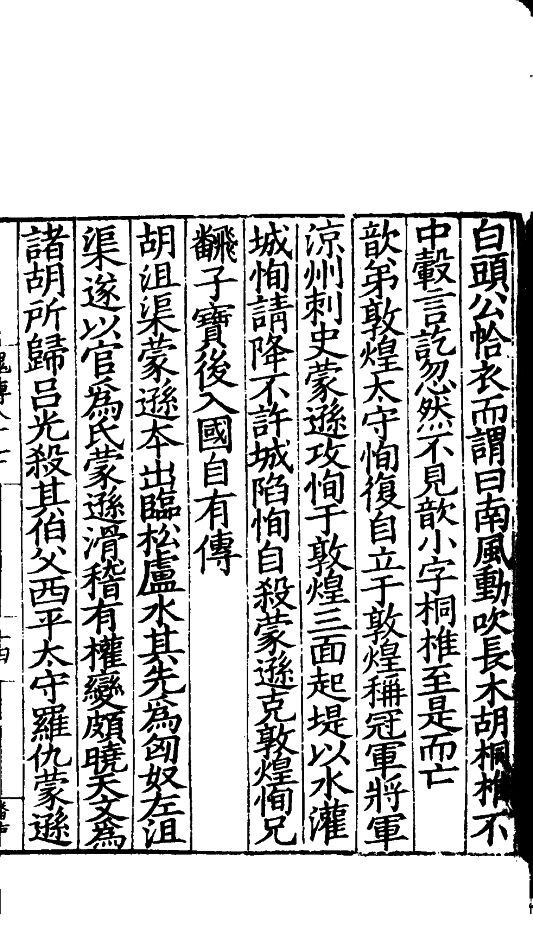 白頭公帢衣而謂曰南風動吹長木胡桐椎不
中轂言訖忽然不見歆小字桐椎至是而亡
歆弟敦煌太守恂復自立于敦煌稱冠軍將軍
涼州刺史蒙遜攻恂于敦煌三面起堤以水灌
城恂請降不許城陷恂自殺蒙遜克敦煌恂兄
飜子寶後入國自有傳
胡沮渠蒙遜本出臨松盧水其先爲匈奴左沮
渠遂以官爲氏蒙遜滑稽有權變頗曉天文爲
諸胡所歸呂光殺其伯父西平太守羅仇蒙遜